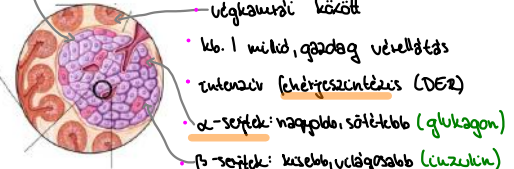 végkamrái között
kb. 1 millió, gazdag vérellátás
intenzív fehérjeszintézis (DER)
α-sejtek: nagyobb, sötétebb (glukagon)
β-sejtek: kisebb, világosabb (inzulin)